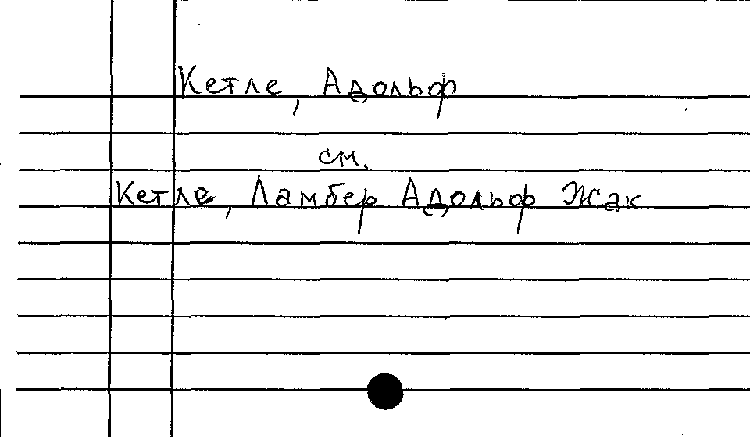 Кетле, Адольф
см.
Кетле, Ламбер Адольф Жак